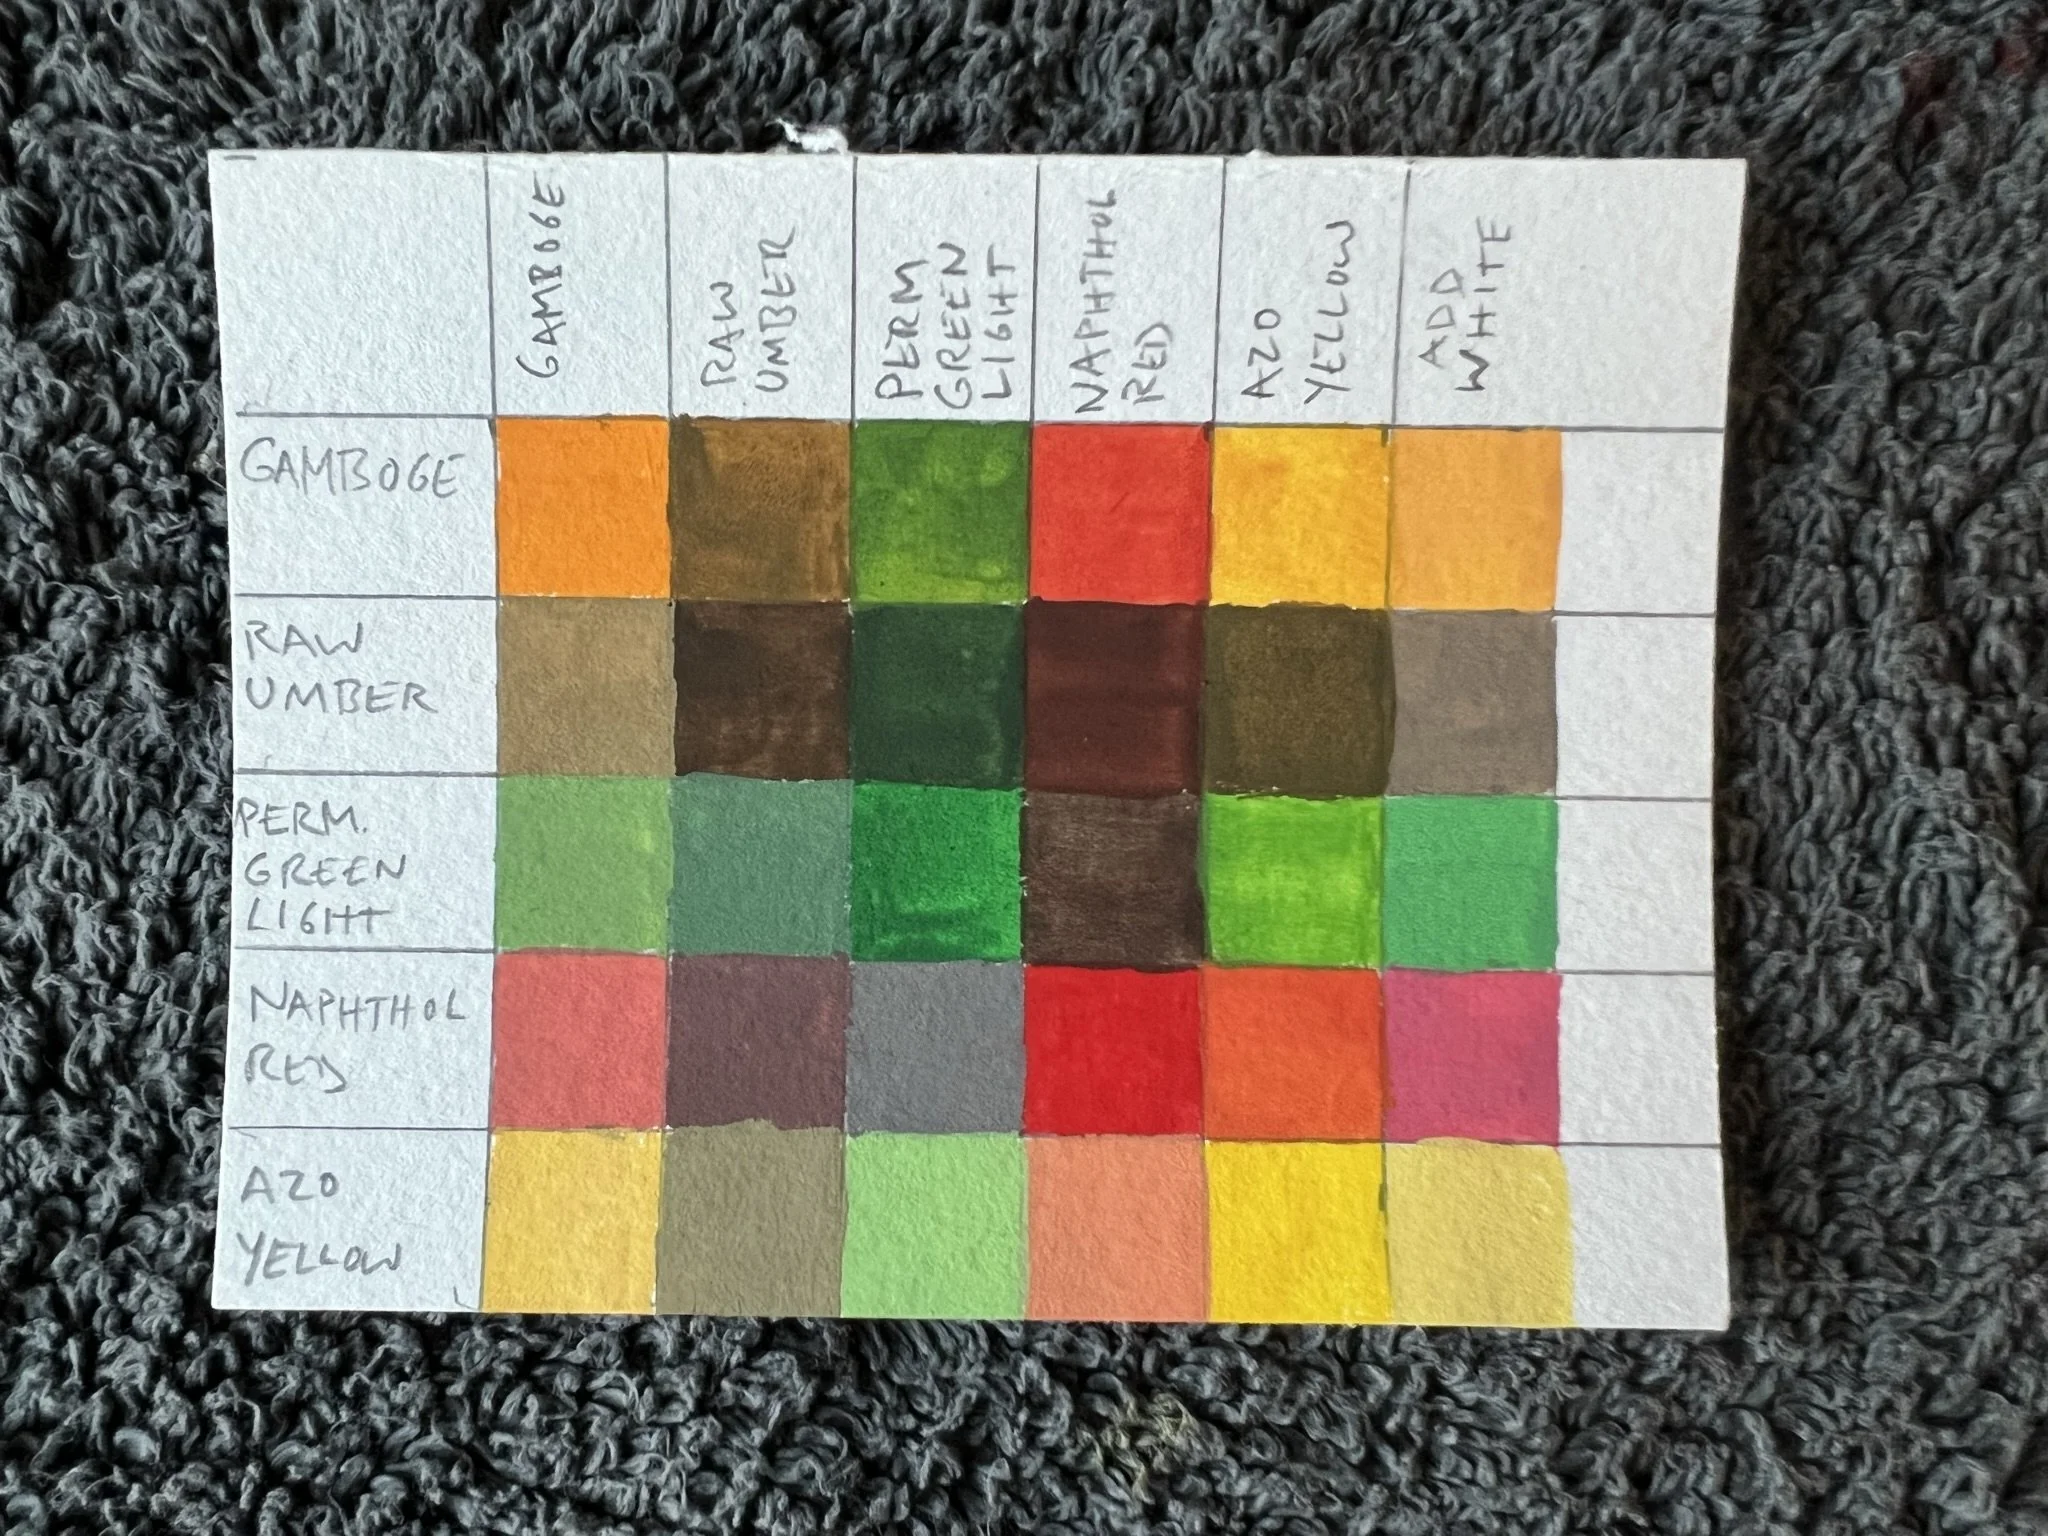 GAMBOGE
RAW
UMBER
PERM
GREEN
LIGHT
NAPHTHOL
RED
AZO
YELLOW
ADD
WHITE
GAMBOGE
RAW
UMBER
PERM.
GREEN
LIGHT
NAPHTHOL
RED
AZO
YELLOW